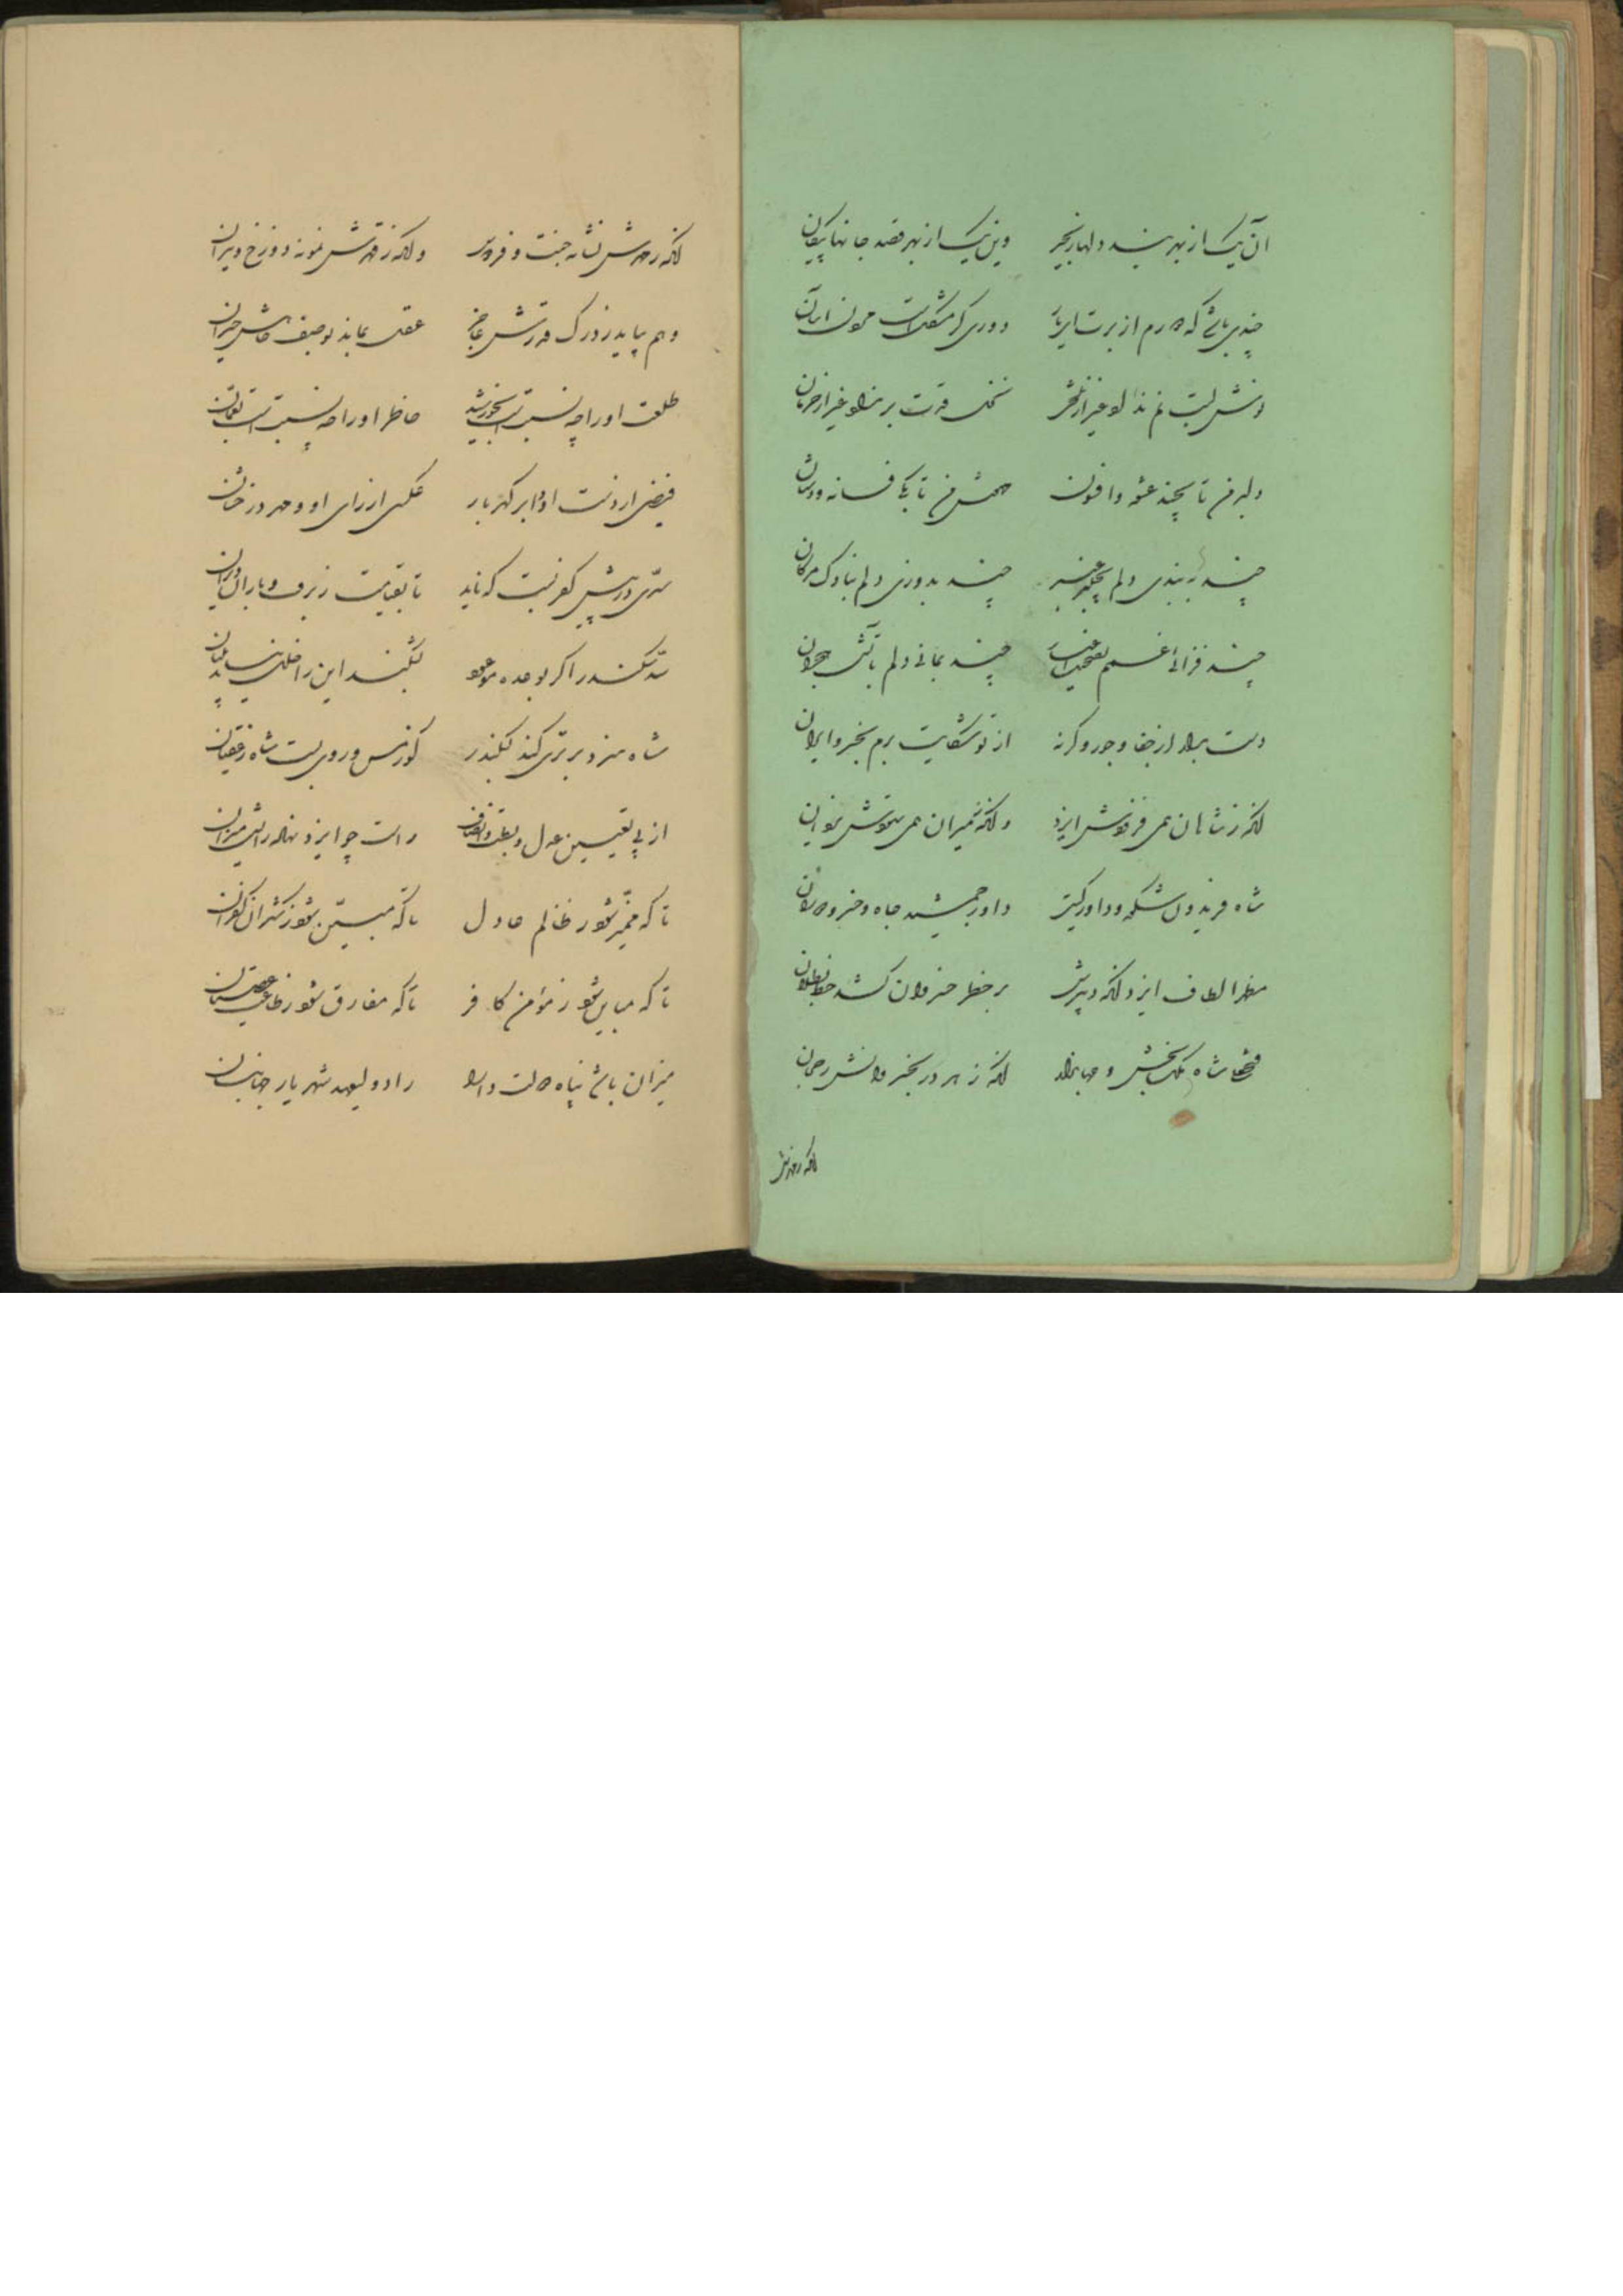 آن یک از بهر بند دلها زنجیر وین یک از بهر قصد جانها پیکان
چندی باش که دارم از برت ای یار دوری کز مشکلات بمون آسان
لبت غیر از نخل قدت بر غیر از حرمان
دلبر من تا بچند عشوه و افسون مهوش من تا بکی فسانه و دستان
چند ببندی دلم بچنبر عنبر چند بدوزی دلم بناوک مژگان
چند فزائی غمم چند بمانی دلم بآتش هجران
دست بدار از جفا و جور وگرنه از تو شکایت برم بخسرو ایران
آنکه ز شاهان همی فزونش ایزد وآنکه ز میران همی ستودش یزدان
شاه فریدون شکوه و داور گیتی داور جمشید جاه و خسرو دوران
مظهر الطاف ایزد آنکه دبیرش بر خط خسروان کشد خط بطلان
فتحعلی شاه ملک بخش و جهاندار آنکه ز هر در بخسروانش رجحان
آنکه ز مهرش
آنکه ز مهرش نشانه جنت و فردوس وآنکه ز قهرش نمونه دوزخ و نیران
وهم بپاید ز درک قدرتش عاجز عقل بماند بوصف ذاتش حیران
طلعت او را چه نسبت است بخورشید خاطر او را چه نسبت است بعمان
فیضی از دست او و ابر گهربار عکسی از رای او و مهر درخشان
سدی در پیش کفر بست که ناید تا بقیامت ز برف و باران ویران
سد سکندر اگر بوعده موعود بشکند این را خلل نباشد پایان
شاه سزد برتری کند بسکندر کو ز مس و روی بست شاه ز عقیان
از پی تعیین عدل و بسط و انصاف راست چو ایزد نهاد رایش میزان
تا که ممیز شود ز ظالم عادل تا که مبین شود ز شکران کفران
تا که مباین شود ز مؤمن کافر تا که مفارق شود ز طاعت عصیان
میزان باشد پناه دولت و دارا راد ولیعهد شهریار جهانبان